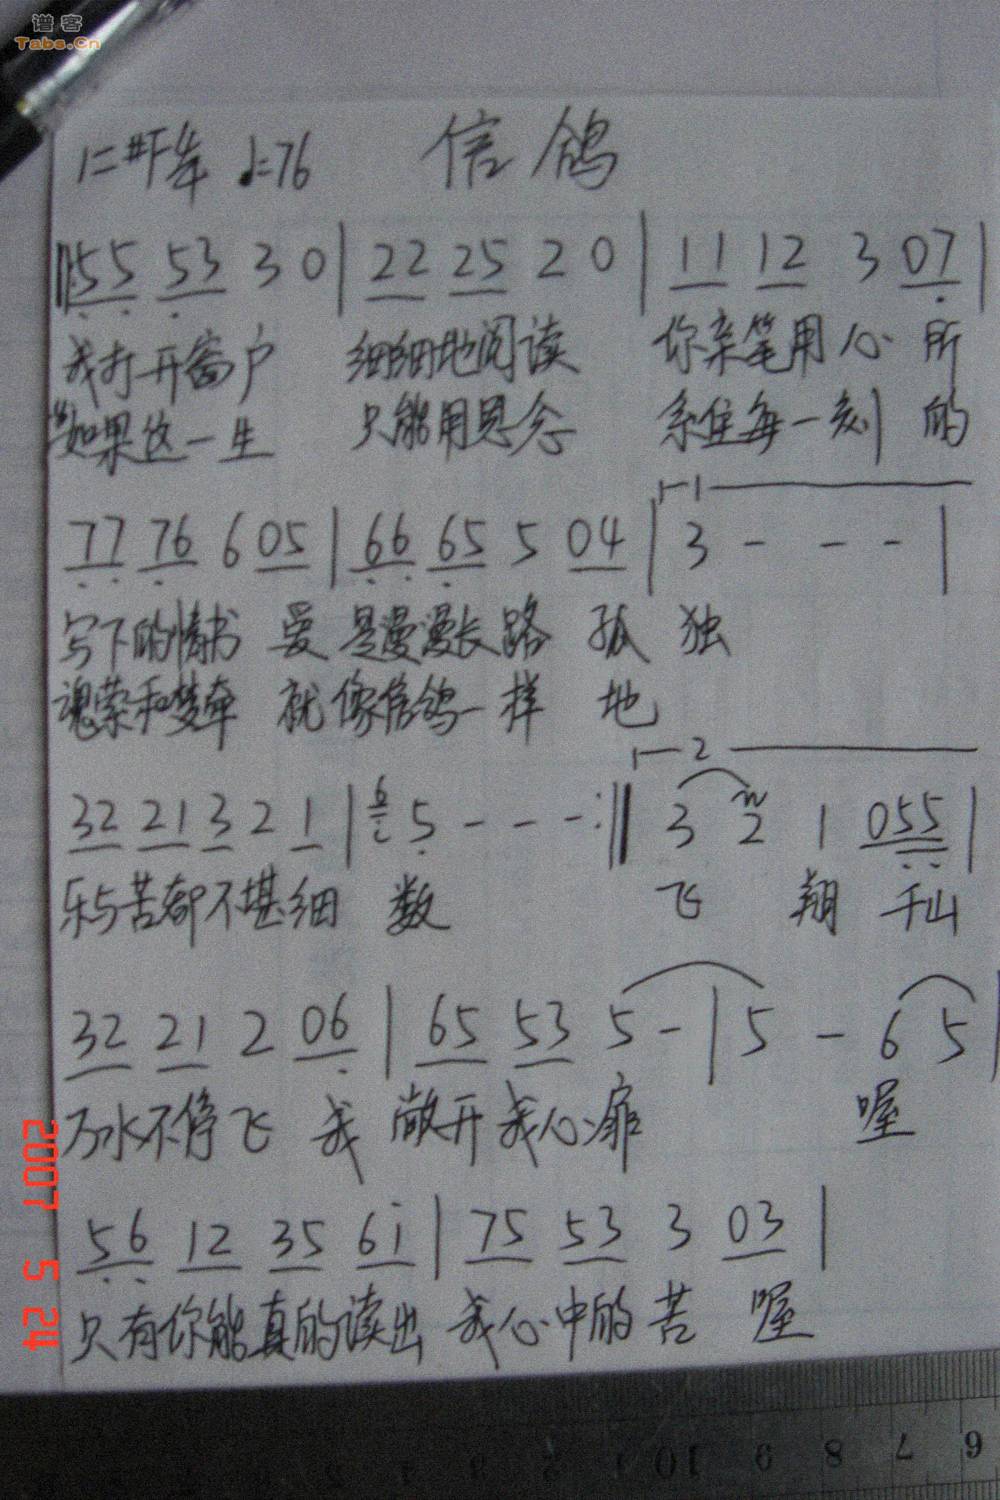 谱客
Tabs.Cn
1=#F 4/4 ♩=76 信鸽
‖:55 53 3 0 | 22 25 2 0 | 11 12 3 07 |
我打开窗户 细细地阅读 你亲笔用心 所
如果这一生 只能用思念 系住每一刻 的
1
77 76 6 05 | 66 65 5 04 | 3 - - - |
写下的情书 爱 是漫漫长路 孤 独
魂萦和梦牵 就 像信鸽一样 地
2
32 21 3 2 1 | 5 - - - :‖ 3 2 1 055 |
乐与苦都不堪细 数 飞 翔 千山
32 21 2 06 | 65 53 5 - | 5 - 6 5 |
万水不停飞 我 敞开我心扉 喔
56 12 35 6i | 75 53 3 03 |
只有你能真的读出 我心中的苦 喔
2007 5 24
10 9 8 7 6